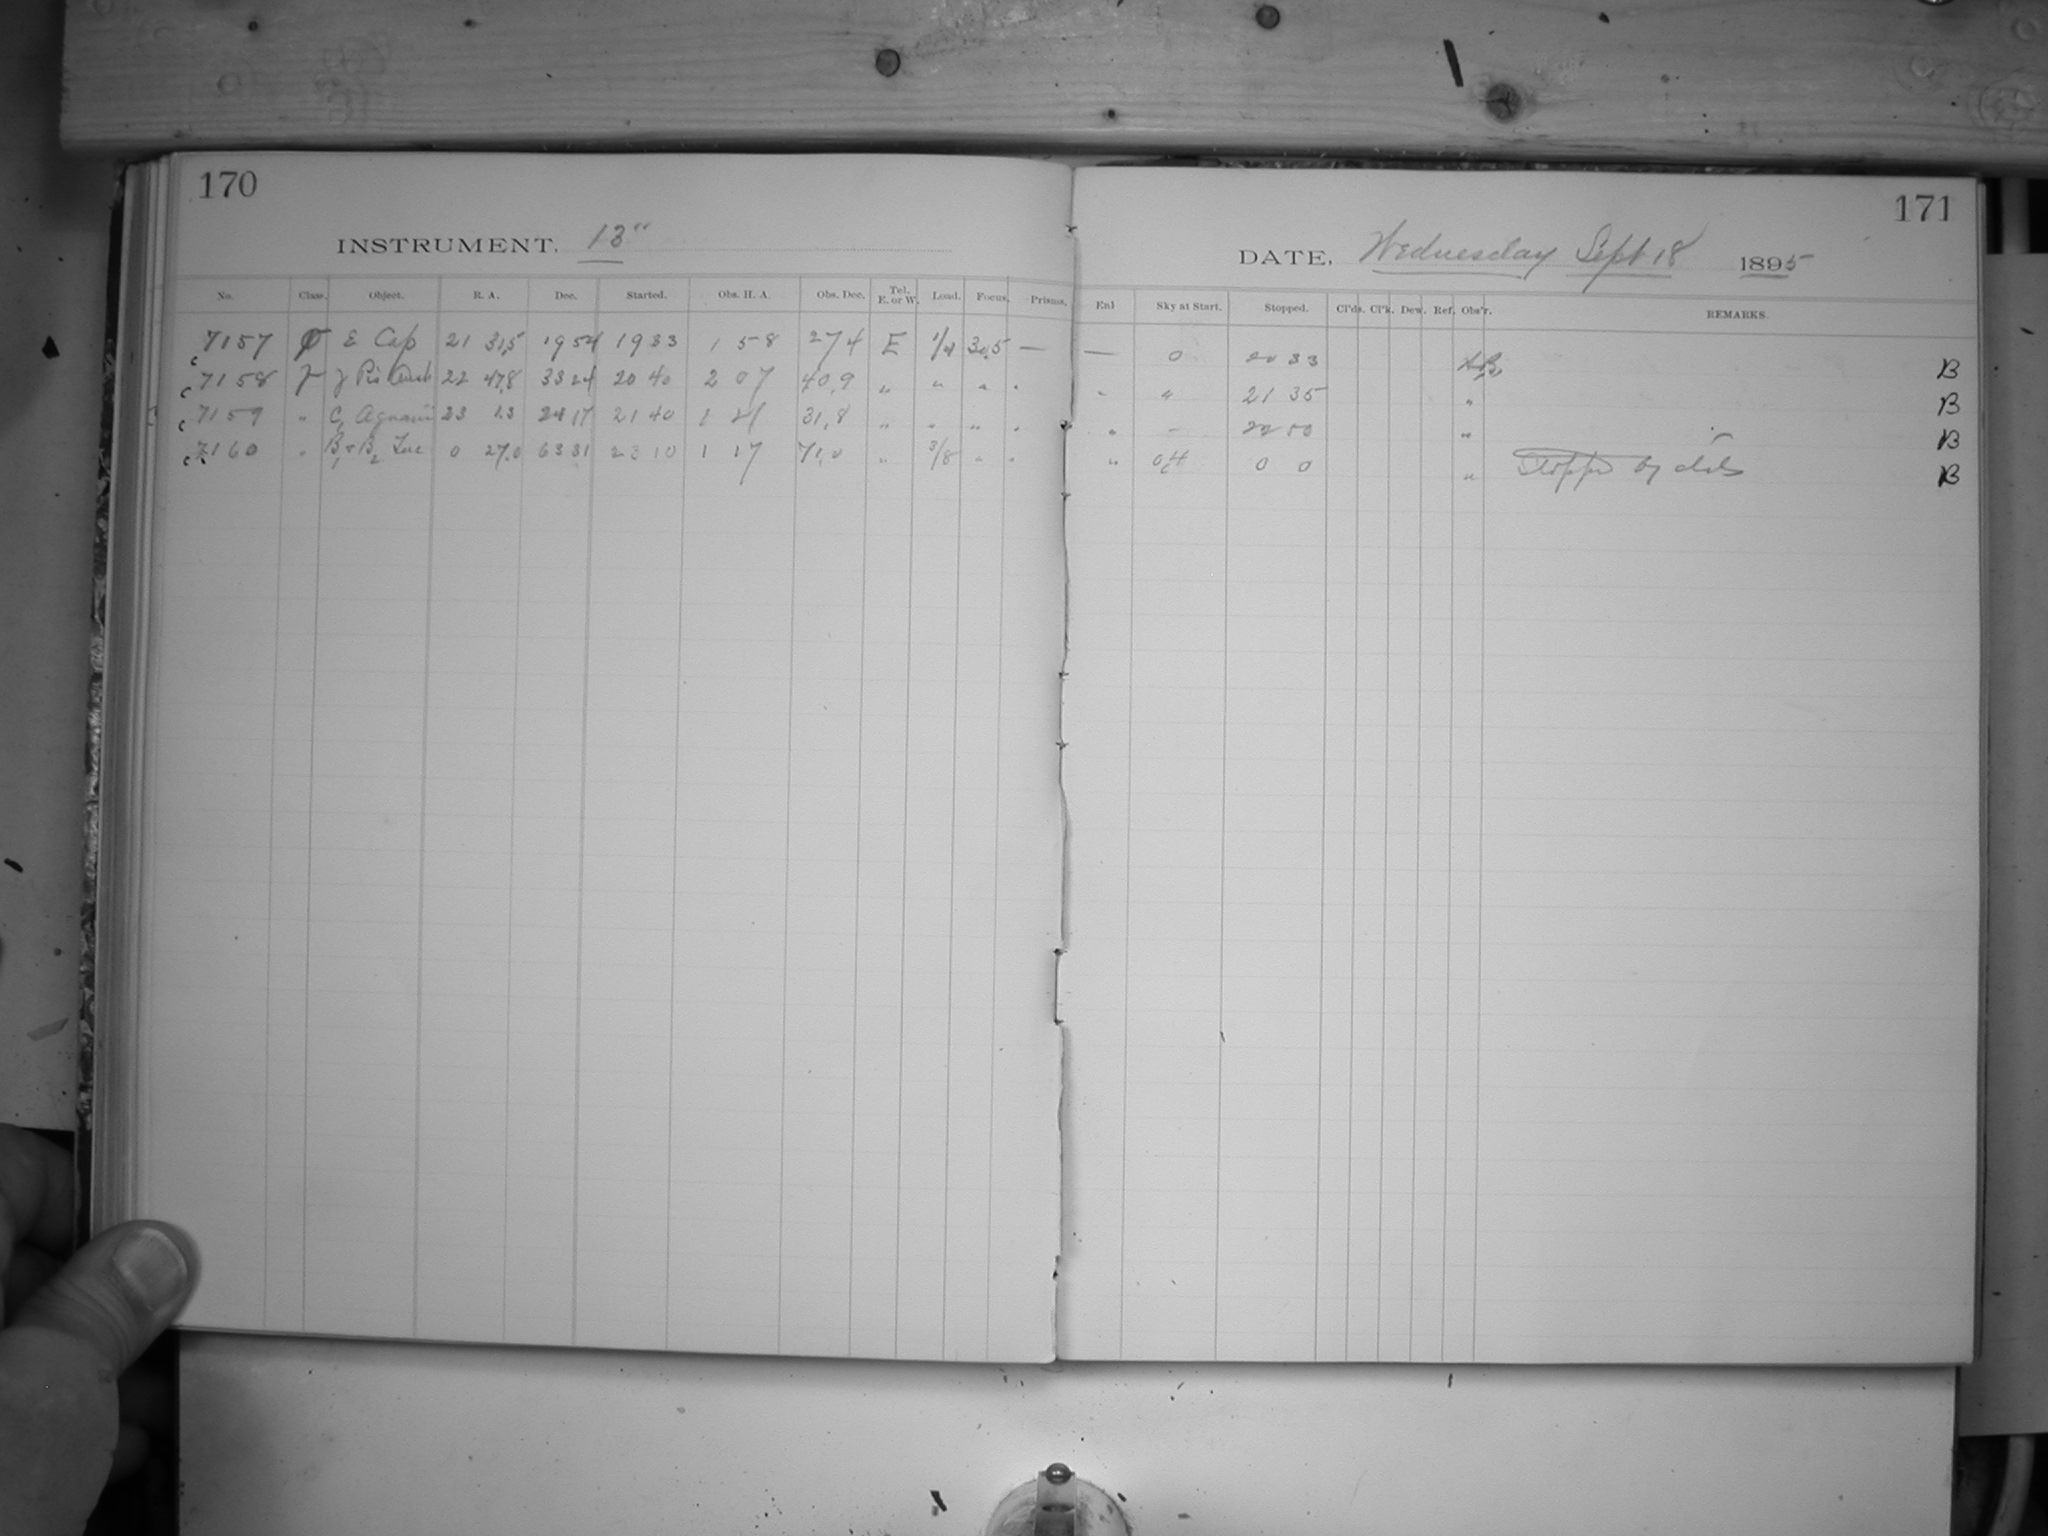 170
INSTRUMENT. 13"
No. Class. Object. R. A. Dec. Started. Obs. H. A. Obs. Dec. Tel. E. or W. Load. Focus. Prisms.
7157 ε Cap 21 31,5 19 54 19 33 1 58 27 4 E 1/4 30,5 —
7158 γ Pis Aust 22 47,8 33 24 20 40 2 07 40,9 " " " "
7159 " Aquarii 23 1.3 21 40 1 31,8 " " " "
7160 " B1 + B2 Tuc 0 27,0 63 31 23 10 1 17 71,0 " 3/8 " "
171
DATE, Wednesday Sept 18 1895
Enl Sky at Start. Stopped. Cl'ds. Cl'k. Dew. Ref. Obs'r. REMARKS.
— 0 20 33 B
" " 21 35 " B
" - 22 50 " B
" 0 0 " Stopped by clds B